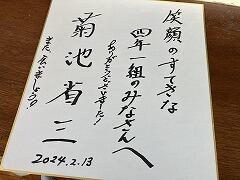 笑顔のすてきな
四年一組のみなさんへ
ありがとうございました！
菊池省三
また、会いましょう。
2024.2.13